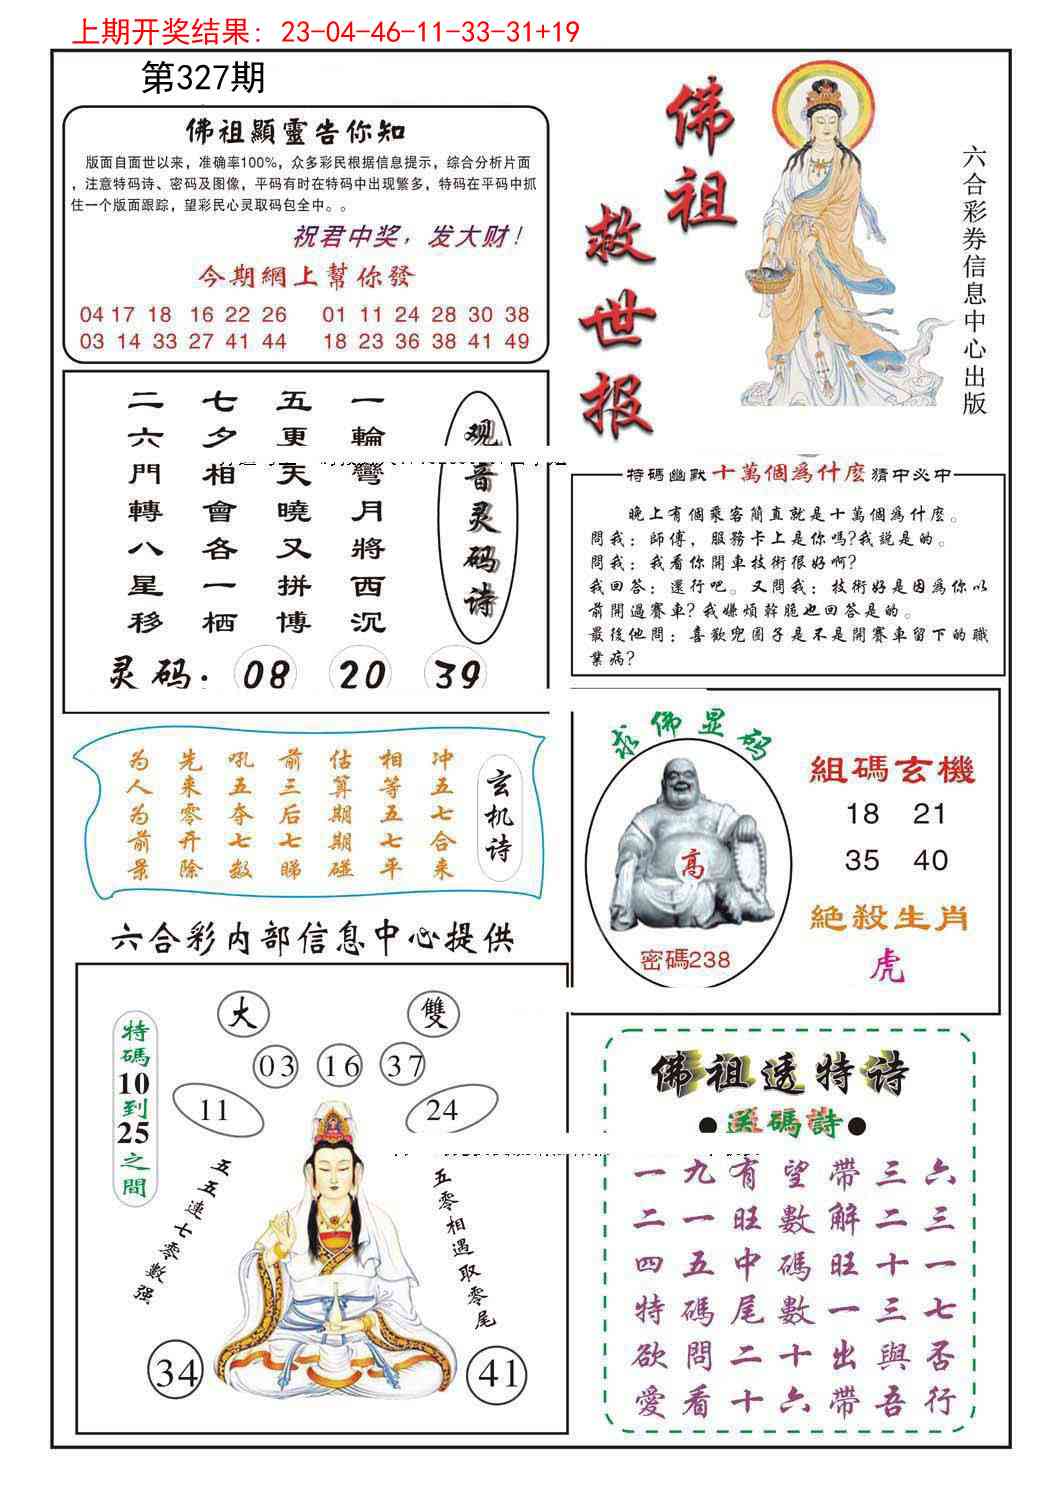 上期开奖结果: 23-04-46-11-33-31+19
第327期
佛祖顯靈告你知
版面自面世以来，准确率100%，众多彩民根据信息提示，综合分析片面
，注意特码诗、密码及图像，平码有时在特码中出现繁多，特码在平码中抓
住一个版面跟踪，望彩民心灵取码包全中。。
祝君中奖，发大财！
今期網上幫你發
04 17 18 16 22 26 01 11 24 28 30 38
03 14 33 27 41 44 18 23 36 38 41 49
佛祖
救世报
六合彩券信息中心出版
观音灵码诗
一輪彎月將西沉
五更天曉又拼博
七夕相會各一栖
二六門轉八星移
灵码. 08 20 39
特碼幽默 十萬個為什麽 猜中必中
晚上有個乘客簡直就是十萬個為什麽。
問我：師傅，服務卡上是你嗎?我說是的。
問我：我看你開車技術很好啊?
我回答：還行吧。又問我：技術好是因為你以
前開過賽車?我嫌煩幹脆也回答是的。
最後他問：喜歡兜圈子是不是開賽車留下的職
業病?
玄机诗
冲五七合来
相等五七平
估算期期碰
前三后七睇
吼五夺七数
先来零开除
为人为前景
求佛显码
高
密碼238
組碼玄機
18 21
35 40
絕殺生肖
虎
六合彩内部信息中心提供
大 雙
03 16 37
11 24
特碼10到25之間
五五連七零數强
五零相遇取零尾
34 41
佛祖透特诗
●送碼詩●
一九有望帶三六
二一旺數解二三
四五中碼旺十一
特碼尾數一三七
欲問二十出與否
愛看十六帶吾行